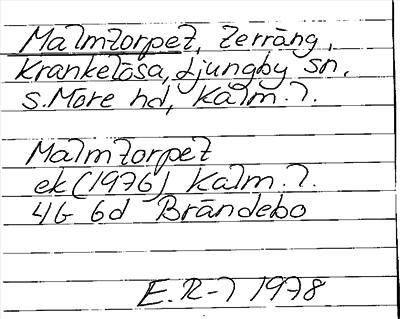 Malmtorpet, terräng,
Krankelösa, Ljungby sn,
S. Möre hd, Kalm. l.
Malmtorpet
ek (1976) Kalm. l.
4G 6d Brändebo
E. R-l 1978